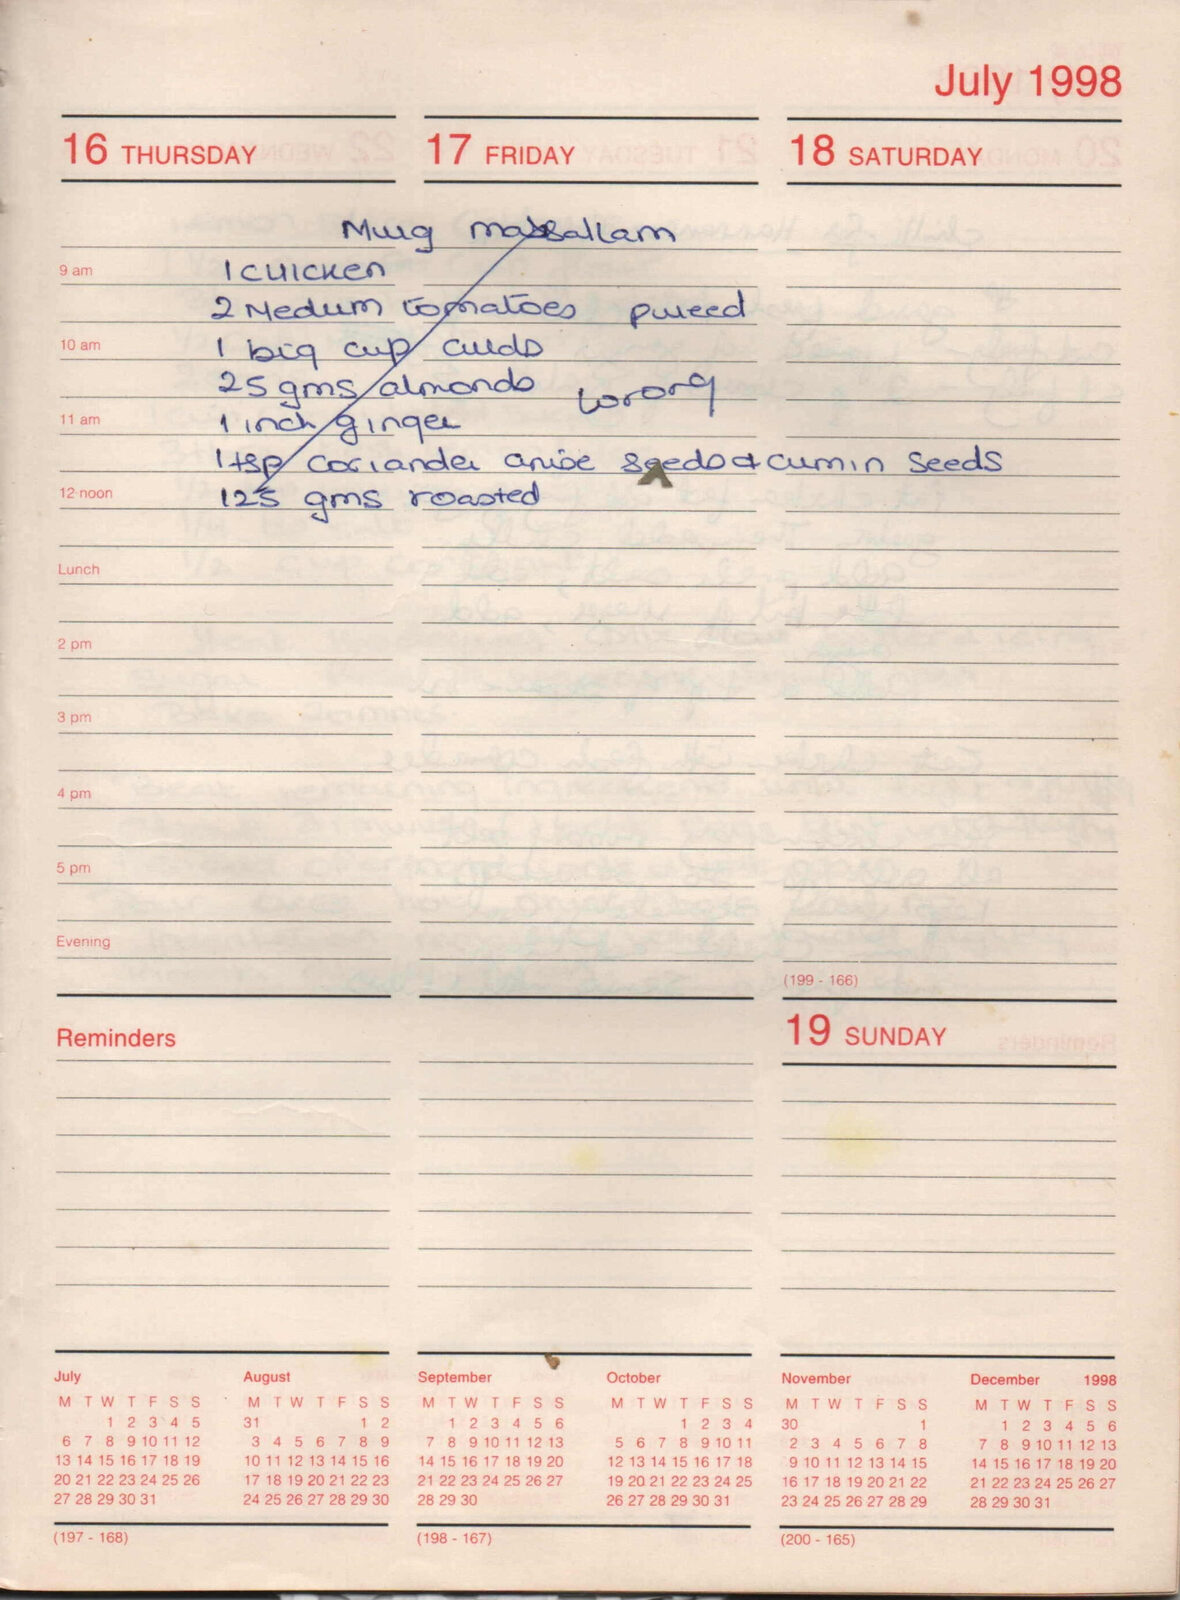 July 1998
16 THURSDAY
17 FRIDAY
18 SATURDAY
Murg massallam
9 am
1 chicken
2 Medium tomatoes pureed
10 am
1 big cup curds
25 gms almonds wrong
11 am
1 inch ginger
1 tsp coriander anise seeds & cumin seeds
12 noon
125 gms roasted
Lunch
2 pm
3 pm
4 pm
5 pm
Evening
(199 - 166)
Reminders
19 SUNDAY
July
M T W T F S S
1 2 3 4 5
6 7 8 9 10 11 12
13 14 15 16 17 18 19
20 21 22 23 24 25 26
27 28 29 30 31
August
M T W T F S S
31 1 2
3 4 5 6 7 8 9
10 11 12 13 14 15 16
17 18 19 20 21 22 23
24 25 26 27 28 29 30
September
M T W T F S S
1 2 3 4 5 6
7 8 9 10 11 12 13
14 15 16 17 18 19 20
21 22 23 24 25 26 27
28 29 30
October
M T W T F S S
1 2 3 4
5 6 7 8 9 10 11
12 13 14 15 16 17 18
19 20 21 22 23 24 25
26 27 28 29 30 31
November
M T W T F S S
30 1
2 3 4 5 6 7 8
9 10 11 12 13 14 15
16 17 18 19 20 21 22
23 24 25 26 27 28 29
December 1998
M T W T F S S
1 2 3 4 5 6
7 8 9 10 11 12 13
14 15 16 17 18 19 20
21 22 23 24 25 26 27
28 29 30 31
(197 - 168)
(198 - 167)
(200 - 165)